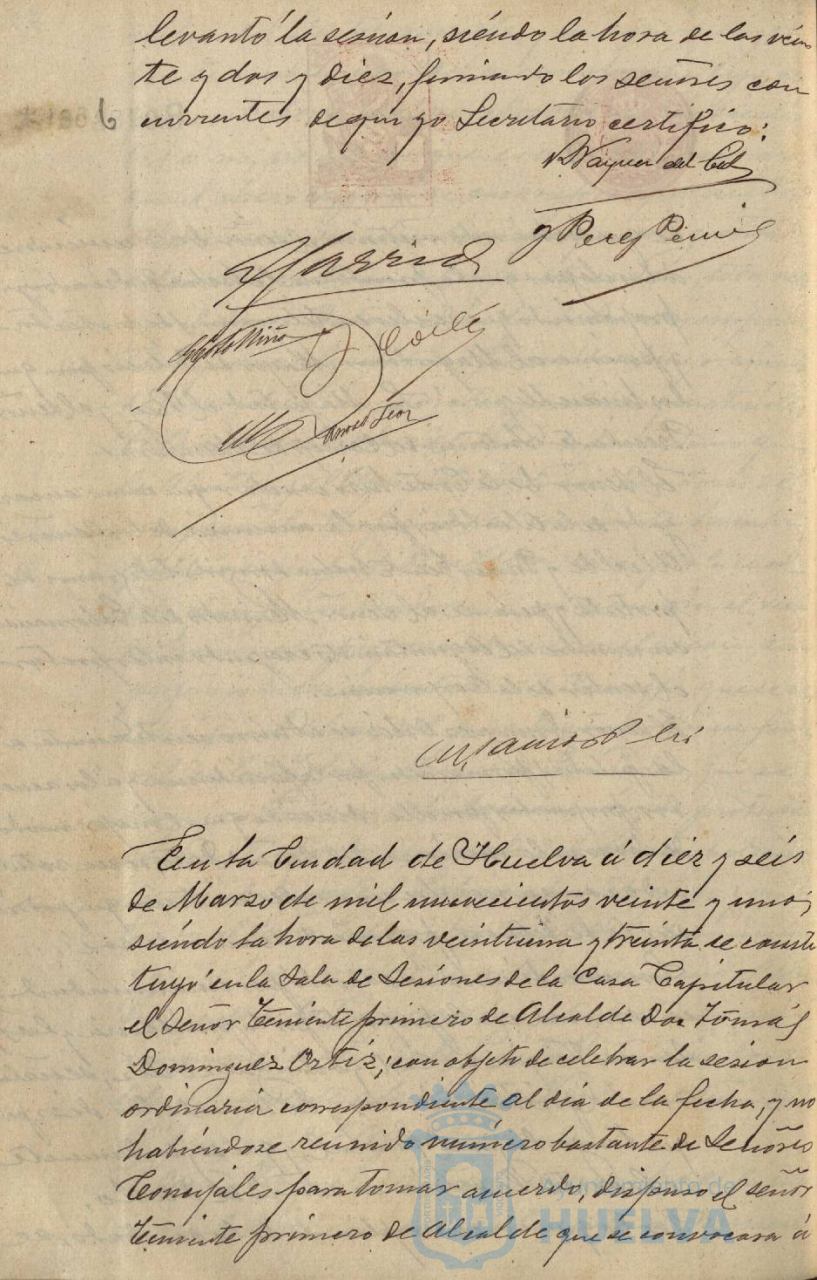 levantó la sesión, siéndo la hora de las vein
te y dos y diez, firmando los señores con
currentes de que yo Secretario certifico:
6
Garrido
y Perez
En la Ciudad de Huelva á diez y seis
de Marzo de mil novecientos veinte y uno;
siéndo la hora de las veintiuna y treinta se consti
tuyó en la Sala de Sesiones de la Casa Capitular
el Señor Teniente primero de Alcalde Don Tomás
Dominguez Ortiz; con objeto de celebrar la sesion
ordinaria correspondiente al día de la fecha, y no
habiéndose reunido número bastante de Señores
Concejales para tomar acuerdo, dispuso el señor
Teniente primero de Alcalde que se convocara á
Ayuntamiento de
HUELVA